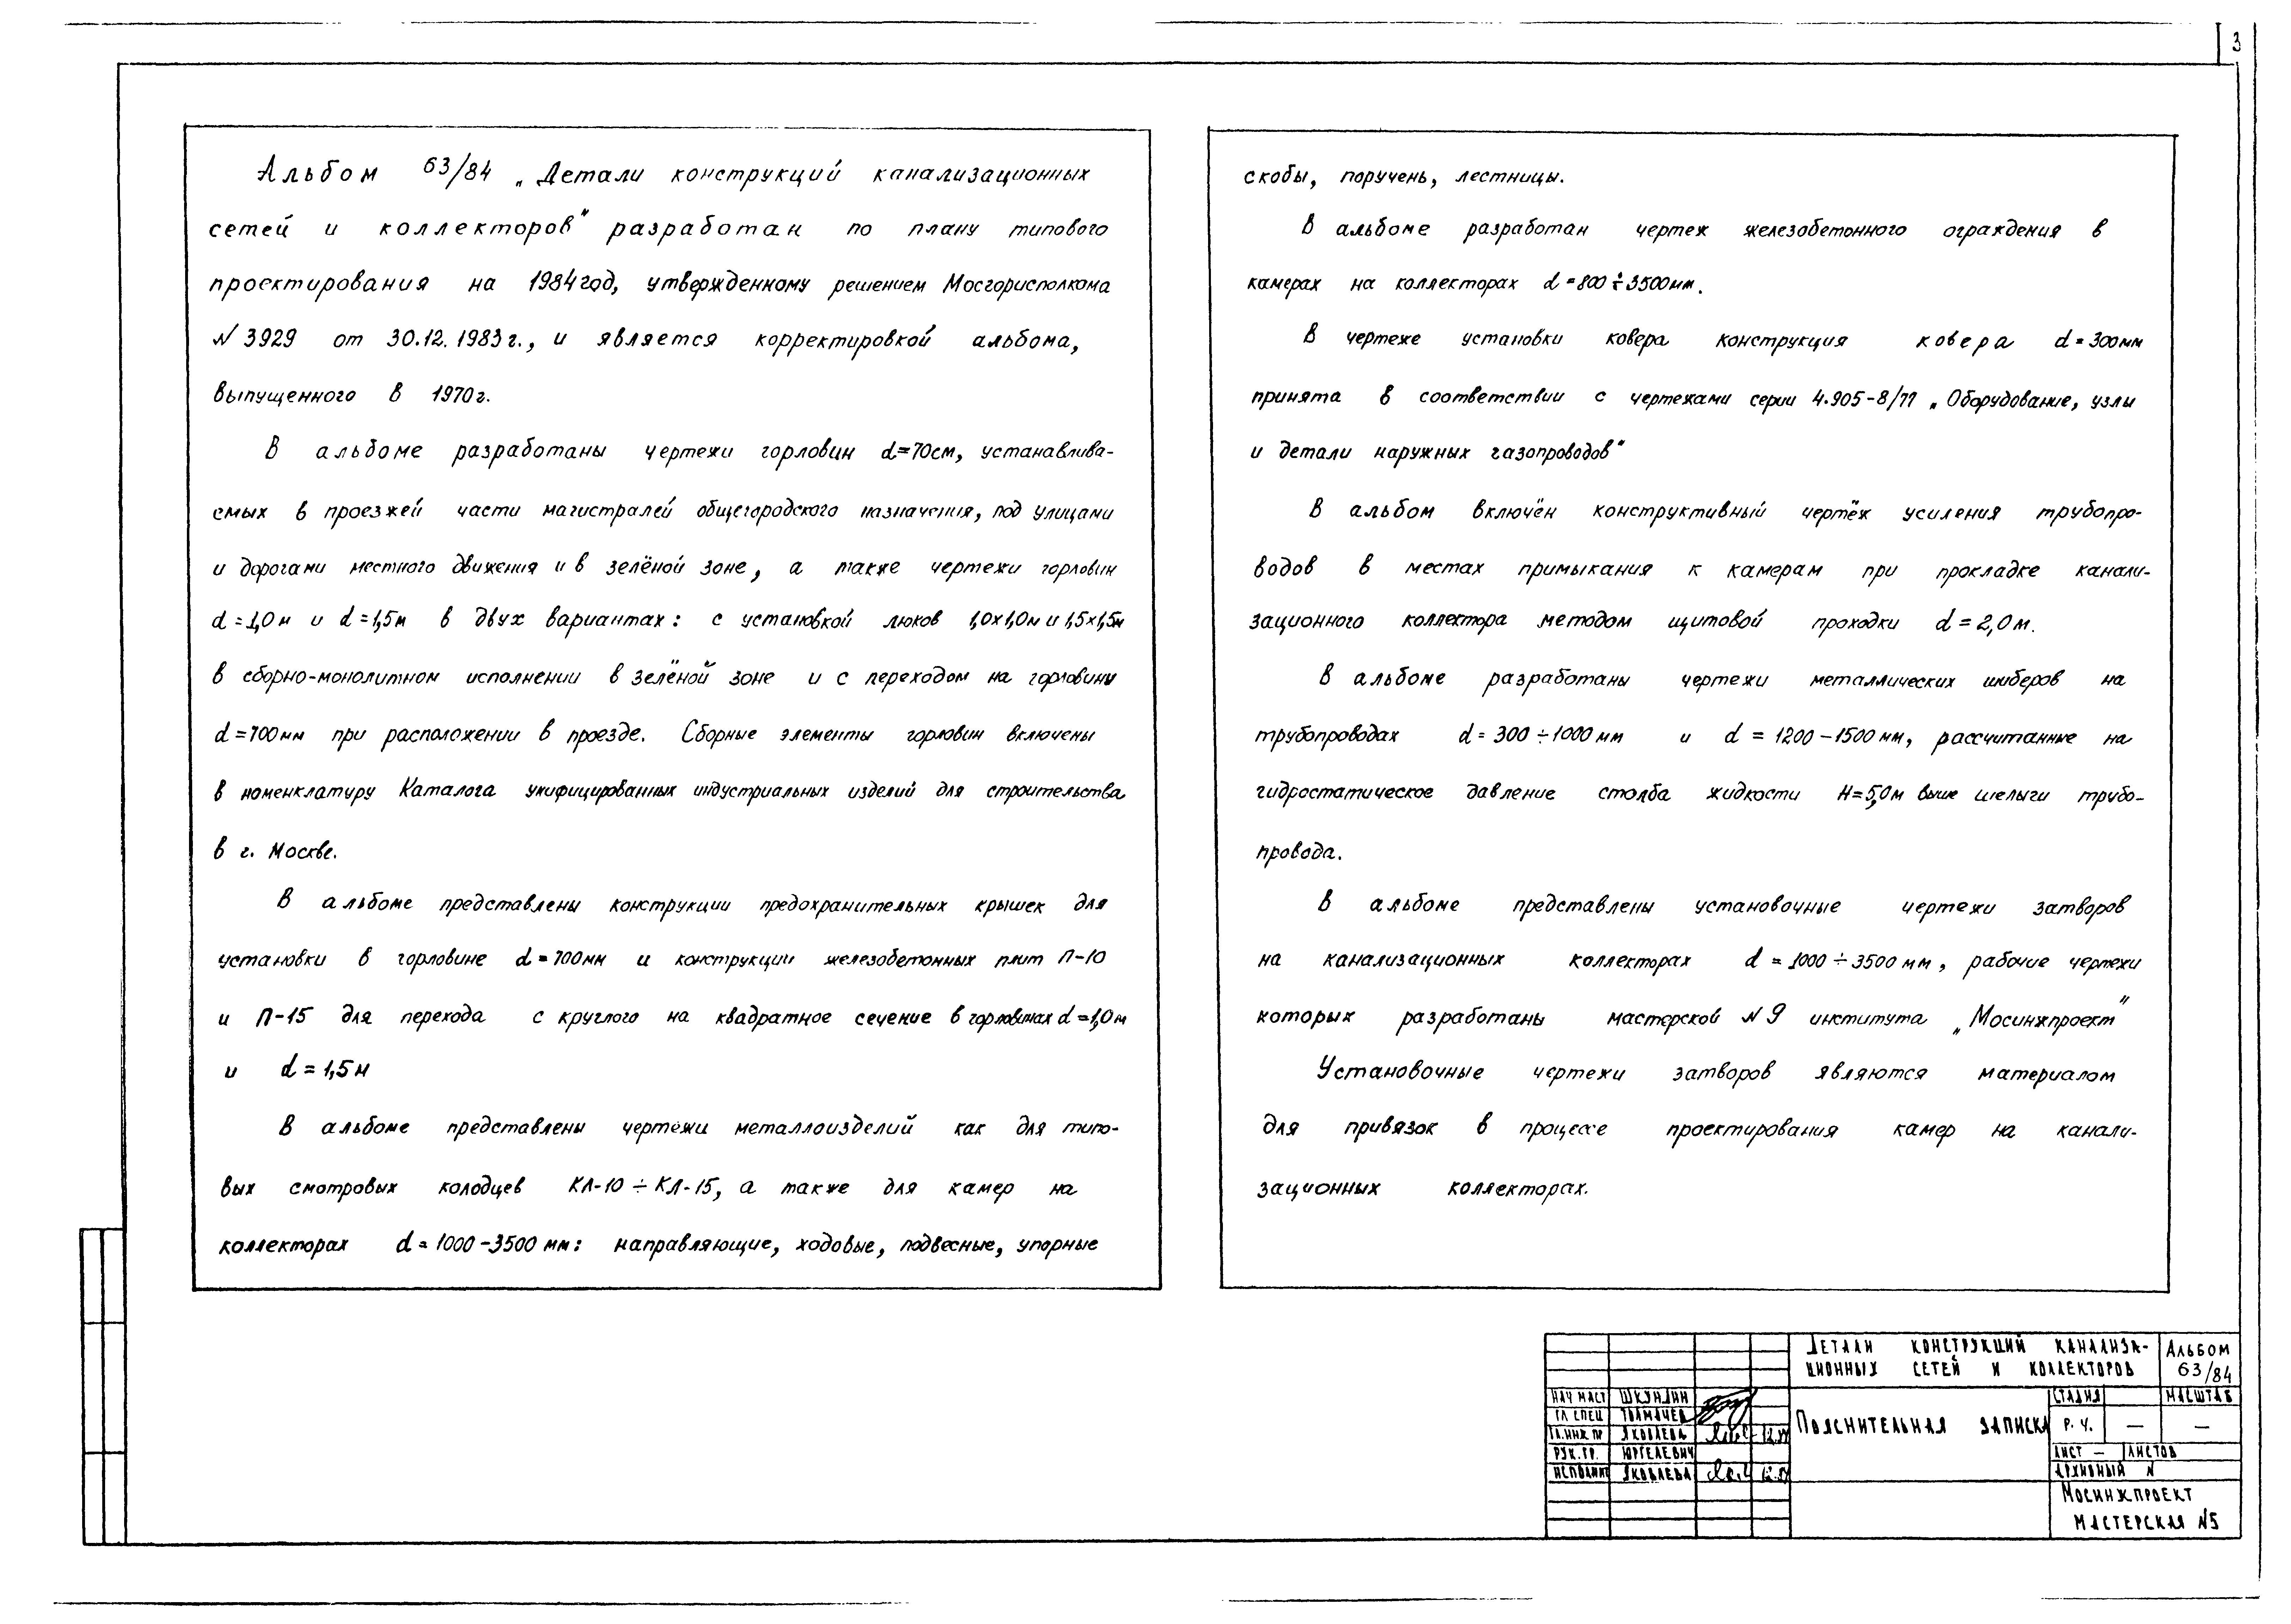 3
Альбом 63/84 „Детали конструкций канализационных
сетей и коллекторов" разработан по плану типового
проектирования на 1984 год, утвержденному решением Мосгорисполкома
N 3929 от 30.12.1983г., и является корректировкой альбома,
выпущенного в 1970г.
В альбоме разработаны чертежи горловин d=70см, устанавлива-
емых в проезжей части магистралей общегородского назначения, под улицами
и дорогами местного движения и в зелёной зоне, а также чертежи горловин
d=1,0м и d=1,5м в двух вариантах: с установкой люков 1,0х1,0м и 1,5х1,5м
в сборно-монолитном исполнении в зелёной зоне и с переходом на горловину
d=700мм при расположении в проезде. Сборные элементы горловин включены
в номенклатуру Каталога унифицированных индустриальных изделий для строительства
в г. Москве.
В альбоме представлены конструкции предохранительных крышек для
установки в горловине d=700мм и конструкции железобетонных плит П-10
и П-15 для перехода с круглого на квадратное сечение в горловинах d=1,0м
и d=1,5м
В альбоме представлены чертежи металлоизделий как для типо-
вых смотровых колодцев КЛ-10÷КЛ-15, а также для камер на
коллекторах d=1000-3500мм: направляющие, ходовые, подвесные, упорные
скобы, поручень, лестницы.
В альбоме разработан чертеж железобетонного ограждения в
камерах на коллекторах d=800÷3500мм.
В чертеже установки ковера конструкция ковера d=300мм
принята в соответствии с чертежами серии 4.905-8/77 „Оборудование, узлы
и детали наружных газопроводов"
В альбом включён конструктивный чертёж усиления трубопро-
водов в местах примыкания к камерам при прокладке канали-
зационного коллектора методом щитовой проходки d=2,0м.
В альбоме разработаны чертежи металлических шиберов на
трубопроводах d=300÷1000мм и d=1200-1500мм, рассчитанные на
гидростатическое давление столба жидкости Н=5,0м выше шелыги трубо-
провода.
В альбоме представлены установочные чертежи затворов
на канализационных коллекторах d=1000÷3500мм, рабочие чертежи
которых разработаны мастерской N 9 института „Мосинжпроект"
Установочные чертежи затворов являются материалом
для привязок в процессе проектирования камер на канали-
зационных коллекторах.
Детали конструкций канализа-
ционных сетей и коллекторов
Альбом
63/84
Нач маст Шкундин
Гл спец Толмачев
Гл.инж пр Яковлева
Рук.гр. Юргелевич
Исполнит Яковлева
Пояснительная записка
Стадия Масштаб
Р.Ч. — —
Лист — Листов
Архивный N
Мосинжпроект
мастерская N5